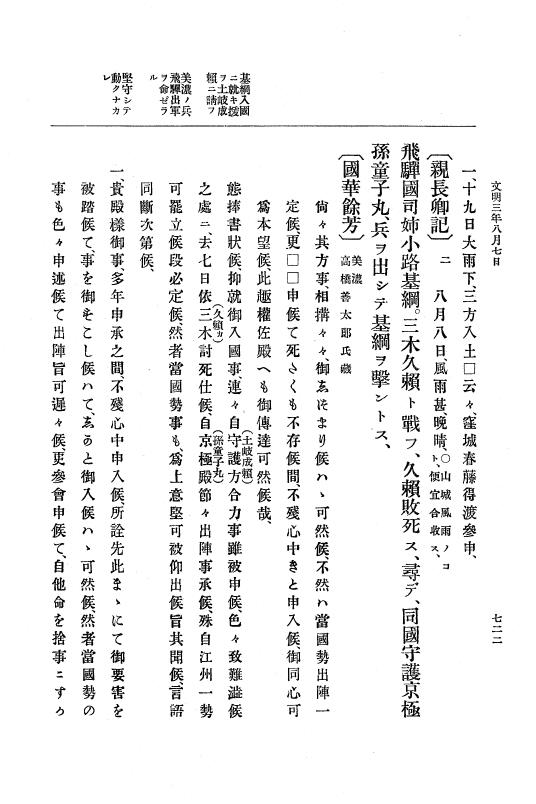 文明三年八月七日
七二二
一、十九日大雨下、三方入土□云々、窪城春藤得渡參申、
〔親長卿記〕ニ　八月八日、風雨甚晩晴、○山城風雨ノコト、便宜合收ス、
飛驒國司姉小路基綱。三木久賴ト戰フ、久賴敗死ス、尋デ、同國守護京極
孫童子丸、兵ヲ出シテ基綱ヲ擊ントス、
〔國華餘芳〕美濃　高橋善太郎氏藏
尙々其方事、相搆々々、御ゑほまり候ハヽ可然候、不然ハ當國勢出陣一
定候、更□□申候て死さくも不存候間、不殘心中きと申入候、御同心可
爲本望候、此趣權佐殿へも御傳達可然候哉、
態捧書狀候、抑就御入國事、連々自守護方（土岐成賴）合力事雖被申候、色々致難澁候
之處ニ、去七日依三木（久賴カ）討死仕候、自京極殿（孫童子丸）節々出陣事承候、殊自江州一勢
可罷立候段必定候、然者當國勢事も、爲上意堅可被仰出候旨其聞候、言語
同斷次第候、
一、貴殿樣御事、多年申承之間、不殘心中申入候、所詮先此まヽにて御要害を
被踏候て、事を御そこし候ハて、ゑのと御入候ハヽ可然候、然者當國勢の
事も色々申述候て出陣旨可遲々候、更參會申候て、自他命を捨事ニすら
基綱入國
ニ就キ援
ヲ土岐成
賴ニ請フ
美濃ノ兵
飛驒出軍
ヲ命ゼラ
ル
堅守シテ
動クナカ
レ